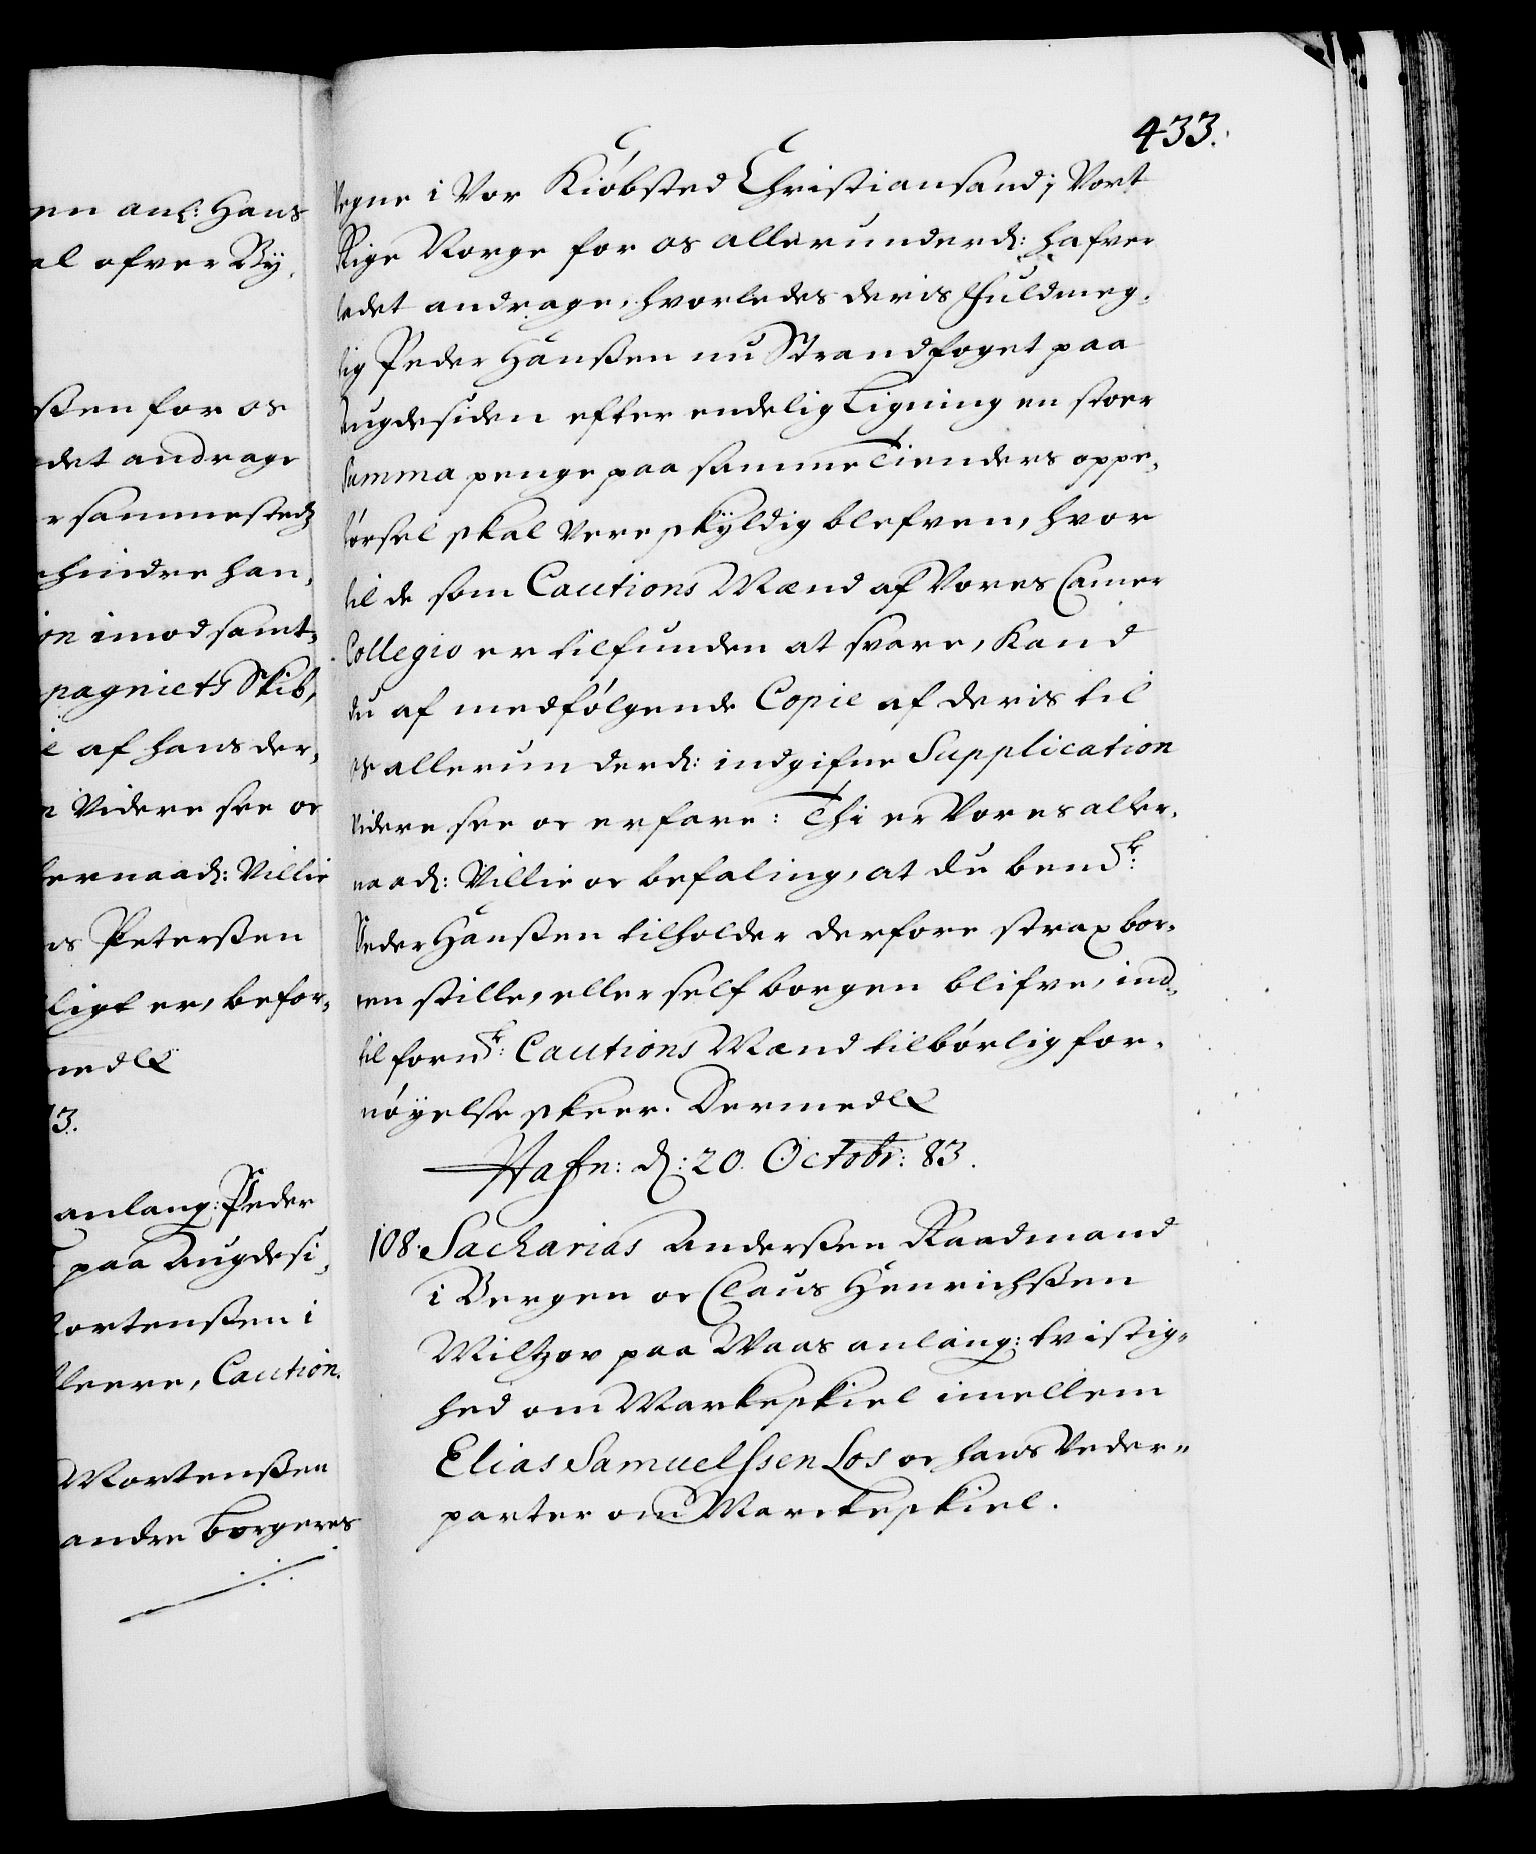 433.
en anl: Hans
al ofver By,
ßen for os
det andrage
r sammestedz
hindre han,
on imod samt,
pagniets Skib,
e af hans der,
n Videre see oc
lernaad: Villie
is Peterßen
ligt er, befor,
medEt
3.
anlang: Peder
paa Augdesi,
Mortenßen i
fleere, Caution.
Mortenßen
andre borgeres
Vegne i Vor Kiöbsted Christiansand i Vort
Rige Norge for os allerunderd: hafver
ladet andrage, hvorledes deris Fuldmeg,
tig Peder Hanßen nu Strandfoget paa
Augdesiden efter endelig Ligning en stoer
Summa penge paa samme Tienders oppe,
börsel skal Vere skÿldig blefven, hvor
til de som Cautions Mænd af Vores Camer
Collegio er tilfunden at svare, Kand
du af medfölgende Copie af deris til
os allerunderd: indgifne Supplication
Videre see oc erfare: Thi er Vores aller,
naad: Villie oc befaling, at du bendt:
Peder Hanßen tilholder derfore strax bor,
gen stille, eller self borgen blifve, ind,
til fornt: Cautions Mænd tilbörlig for,
nöyelse skeer. DermedEt
Hafn: d: 20. Octobr: 83.
108. Sacharias Anderßen Raadmand
i Bergen oc Claus Henrichßen
Miltzov paa Waas anlang: tvistig,
hed om Markeskiel imellem
Elias Samuelssen Los oc hans Veder,,
parter om Marckeskiel.